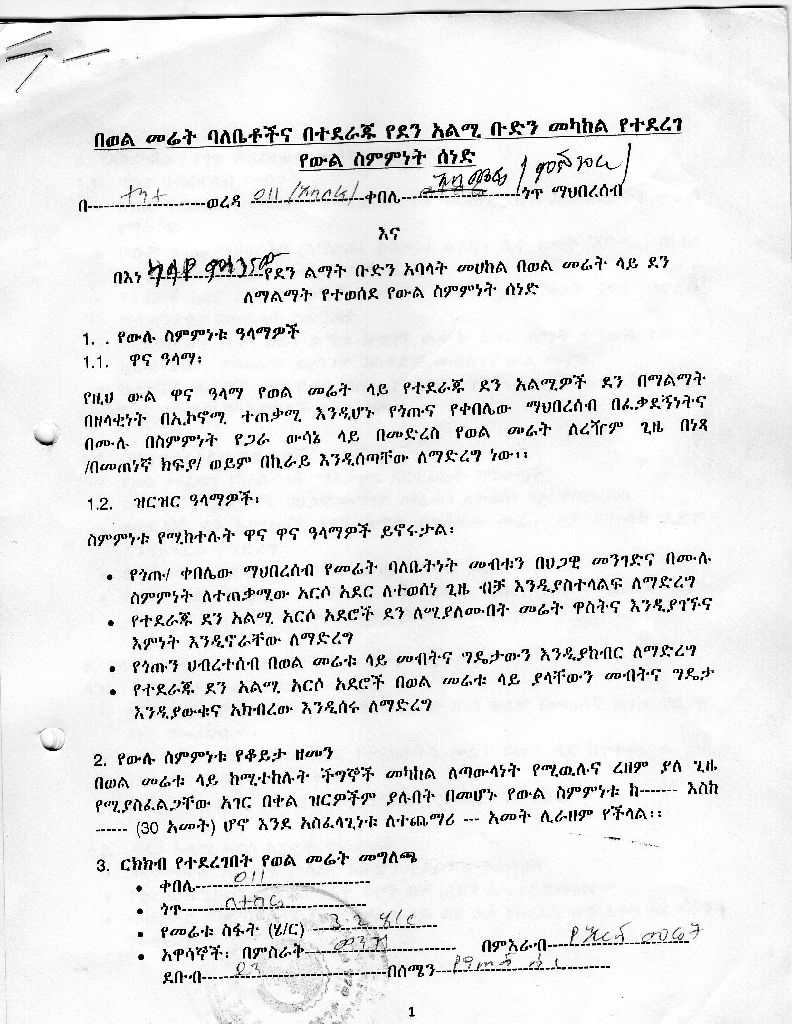 በወል መሬት ባለቤቶችና በተደራጁ የደን አልሚ ቡድን መካከል የተደረገ
የውል ስምምነት ሰነድ
በ-----ተንታ-----ወረዳ 011 ቀበሌ-----ጎጥ ማህበረሰብ
እና
በእነ የደን ልማት ቡድን አባላት መሀከል በወል መሬት ላይ ደን
ለማልማት የተወሰደ የውል ስምምነት ሰነድ
1. . የውሉ ስምምነቱ ዓላማዎች
1.1. ዋና ዓላማ፡
የዚህ ውል ዋና ዓላማ የወል መሬት ላይ የተደራጁ ደን አልሚዎች ደን በማልማት
በዘላቂነት በኢኮኖሚ ተጠቃሚ እንዲሆኑ የጎጡና የቀበሌው ማህበረሰብ በፈቃደኝነትና
በሙሉ በስምምነት የጋራ ውሳኔ ላይ በመድረስ የወል መሬት ለረዥም ጊዜ በነጻ
/በመጠነኛ ክፍያ/ ወይም በኪራይ እንዲሰጣቸው ለማድረግ ነው፡፡
1.2. ዝርዝር ዓላማዎች፡
ስምምነቱ የሚከተሉት ዋና ዋና ዓላማዎች ይኖሩታል፡
• የጎጡ/ ቀበሌው ማህበረሰብ የመሬት ባለቤትነት መብቱን በህጋዊ መንገድና በሙሉ
ስምምነት ለተጠቃሚው አርሶ አደር ለተወሰነ ጊዜ ብቻ እንዲያስተላልፍ ለማድረግ
• የተደራጁ ደን አልሚ አርሶ አደሮች ደን ለሚያለሙበት መሬት ዋስትና እንዲያገኙና
እምነት እንዲኖራቸው ለማድረግ
• የጎጡን ህብረተሰብ በወል መሬቱ ላይ መብትና ግዴታውን እንዲያከብር ለማድረግ
• የተደራጁ ደን አልሚ አርሶ አደሮች በወል መሬቱ ላይ ያላቸውን መብትና ግዴታ
እንዲያውቁና አክብረው እንዲሰሩ ለማድረግ
2. የውሉ ስምምነቱ የቆይታ ዘመን
በወል መሬቱ ላይ ከሚተከሉት ችግኞች መካከል ለጣውላነት የሚዉሉና ረዘም ያለ ጊዜ
የሚያስፈልጋቸው አገር በቀል ዝርዎችም ያሉበት በመሆኑ የውል ስምምነቱ ከ------- እስከ
------ (30 አመት) ሆኖ እንደ አስፈላጊነቱ ለተጨማሪ --- አመት ሊራዘም የችላል፡፡
3. ርክክብ የተደረገበት የወል መሬት መግለጫ
• ቀበሌ-----011-----
• ጎጥ-----
• የመሬቱ ስፋት (ሄ/ር) -----3.2 ሄ/ር-----
• አዋሳኞች፡ በምስራቅ-----መንገድ----- በምእራብ-----
ደቡብ-----03-----በሰሜን-----
1